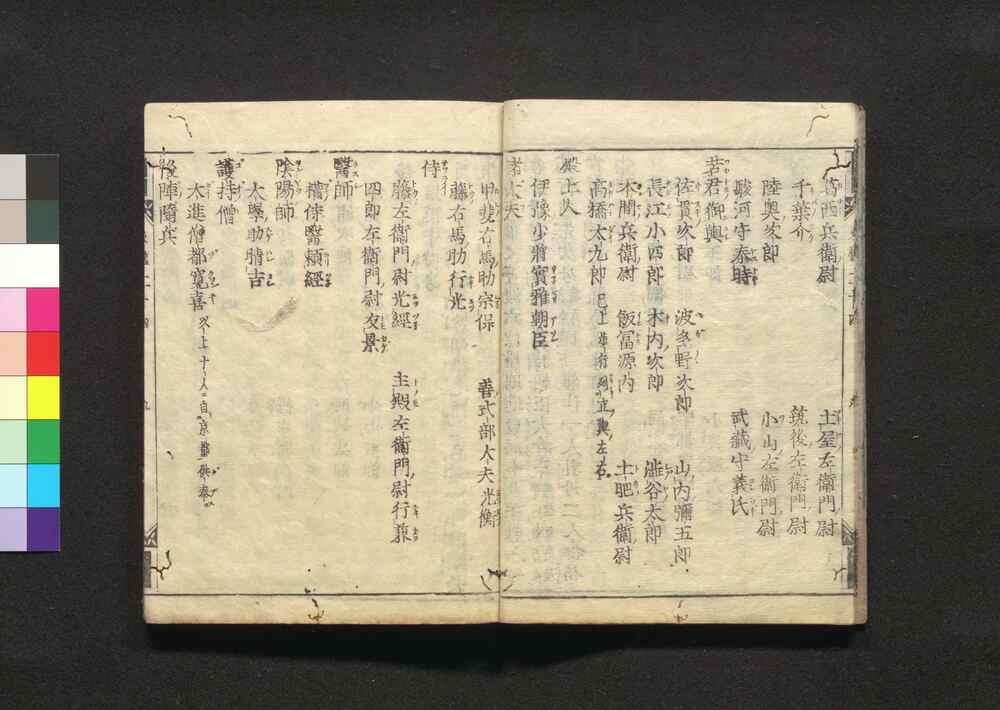 葛西兵衛尉　土屋左衛門尉
千葉介　筑後左衛門尉
陸奥次郎　小山左衛門尉
駿河守泰時　武藏守義氏
若君御輿
佐貫次郎　波多野次郎　山内彌五郎
長江小四郎　木内次郎　澁谷太郎
本間兵衛尉　飯冨源内　土肥兵衛尉
高橋太九郎　已上歩行列御輿左右
殿上人
伊豫少將實雅朝臣
諸大夫
甲斐右馬助宗保　善式部大夫光衡
藤右馬助行光
侍
藤左衞門尉光經　主殿左衞門尉行兼
四郎左衞門尉友景
醫師
權侍醫頼經
陰陽師
大學助晴吉
護持僧
大進僧都寛喜　以上十人ハ自京都供奉
後陣隨兵